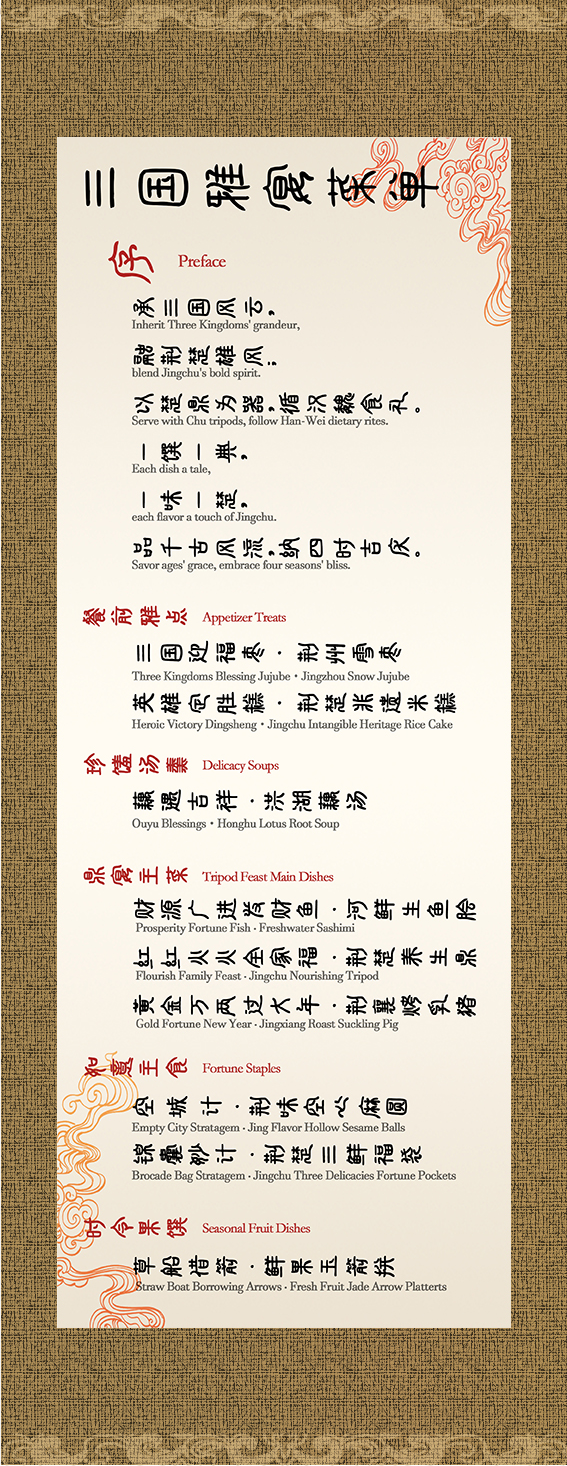 三国雅宴菜单
序 Preface
承三国风云,
Inherit Three Kingdoms' grandeur,
融荆楚雄风;
blend Jingchu's bold spirit.
以楚鼎为器,循汉魏食礼。
Serve with Chu tripods, follow Han-Wei dietary rites.
一馔一典,
Each dish a tale,
一味一楚,
each flavor a touch of Jingchu.
品千古风流,纳四时吉庆。
Savor ages' grace, embrace four seasons' bliss.
餐前雅点 Appetizer Treats
三国迎福枣·荆州雪枣
Three Kingdoms Blessing Jujube・Jingzhou Snow Jujube
英雄定胜糕·荆楚非遗米糕
Heroic Victory Dingsheng・Jingchu Intangible Heritage Rice Cake
珍馐汤羹 Delicacy Soups
藕遇吉祥·洪湖藕汤
Ouyu Blessings・Honghu Lotus Root Soup
鼎宴主菜 Tripod Feast Main Dishes
财源广进发财鱼·河鲜生鱼脍
Prosperity Fortune Fish · Freshwater Sashimi
红红火火全家福·荆楚养生鼎
Flourish Family Feast · Jingchu Nourishing Tripod
黄金万两过大年·荆襄烤乳猪
Gold Fortune New Year · Jingxiang Roast Suckling Pig
如意主食 Fortune Staples
空城计·荆味空心麻圆
Empty City Stratagem · Jing Flavor Hollow Sesame Balls
锦囊妙计·荆楚三鲜福袋
Brocade Bag Stratagem · Jingchu Three Delicacies Fortune Pockets
时令果馔 Seasonal Fruit Dishes
草船借箭·鲜果玉箭
Straw Boat Borrowing Arrows · Fresh Fruit Jade Arrow Platterts